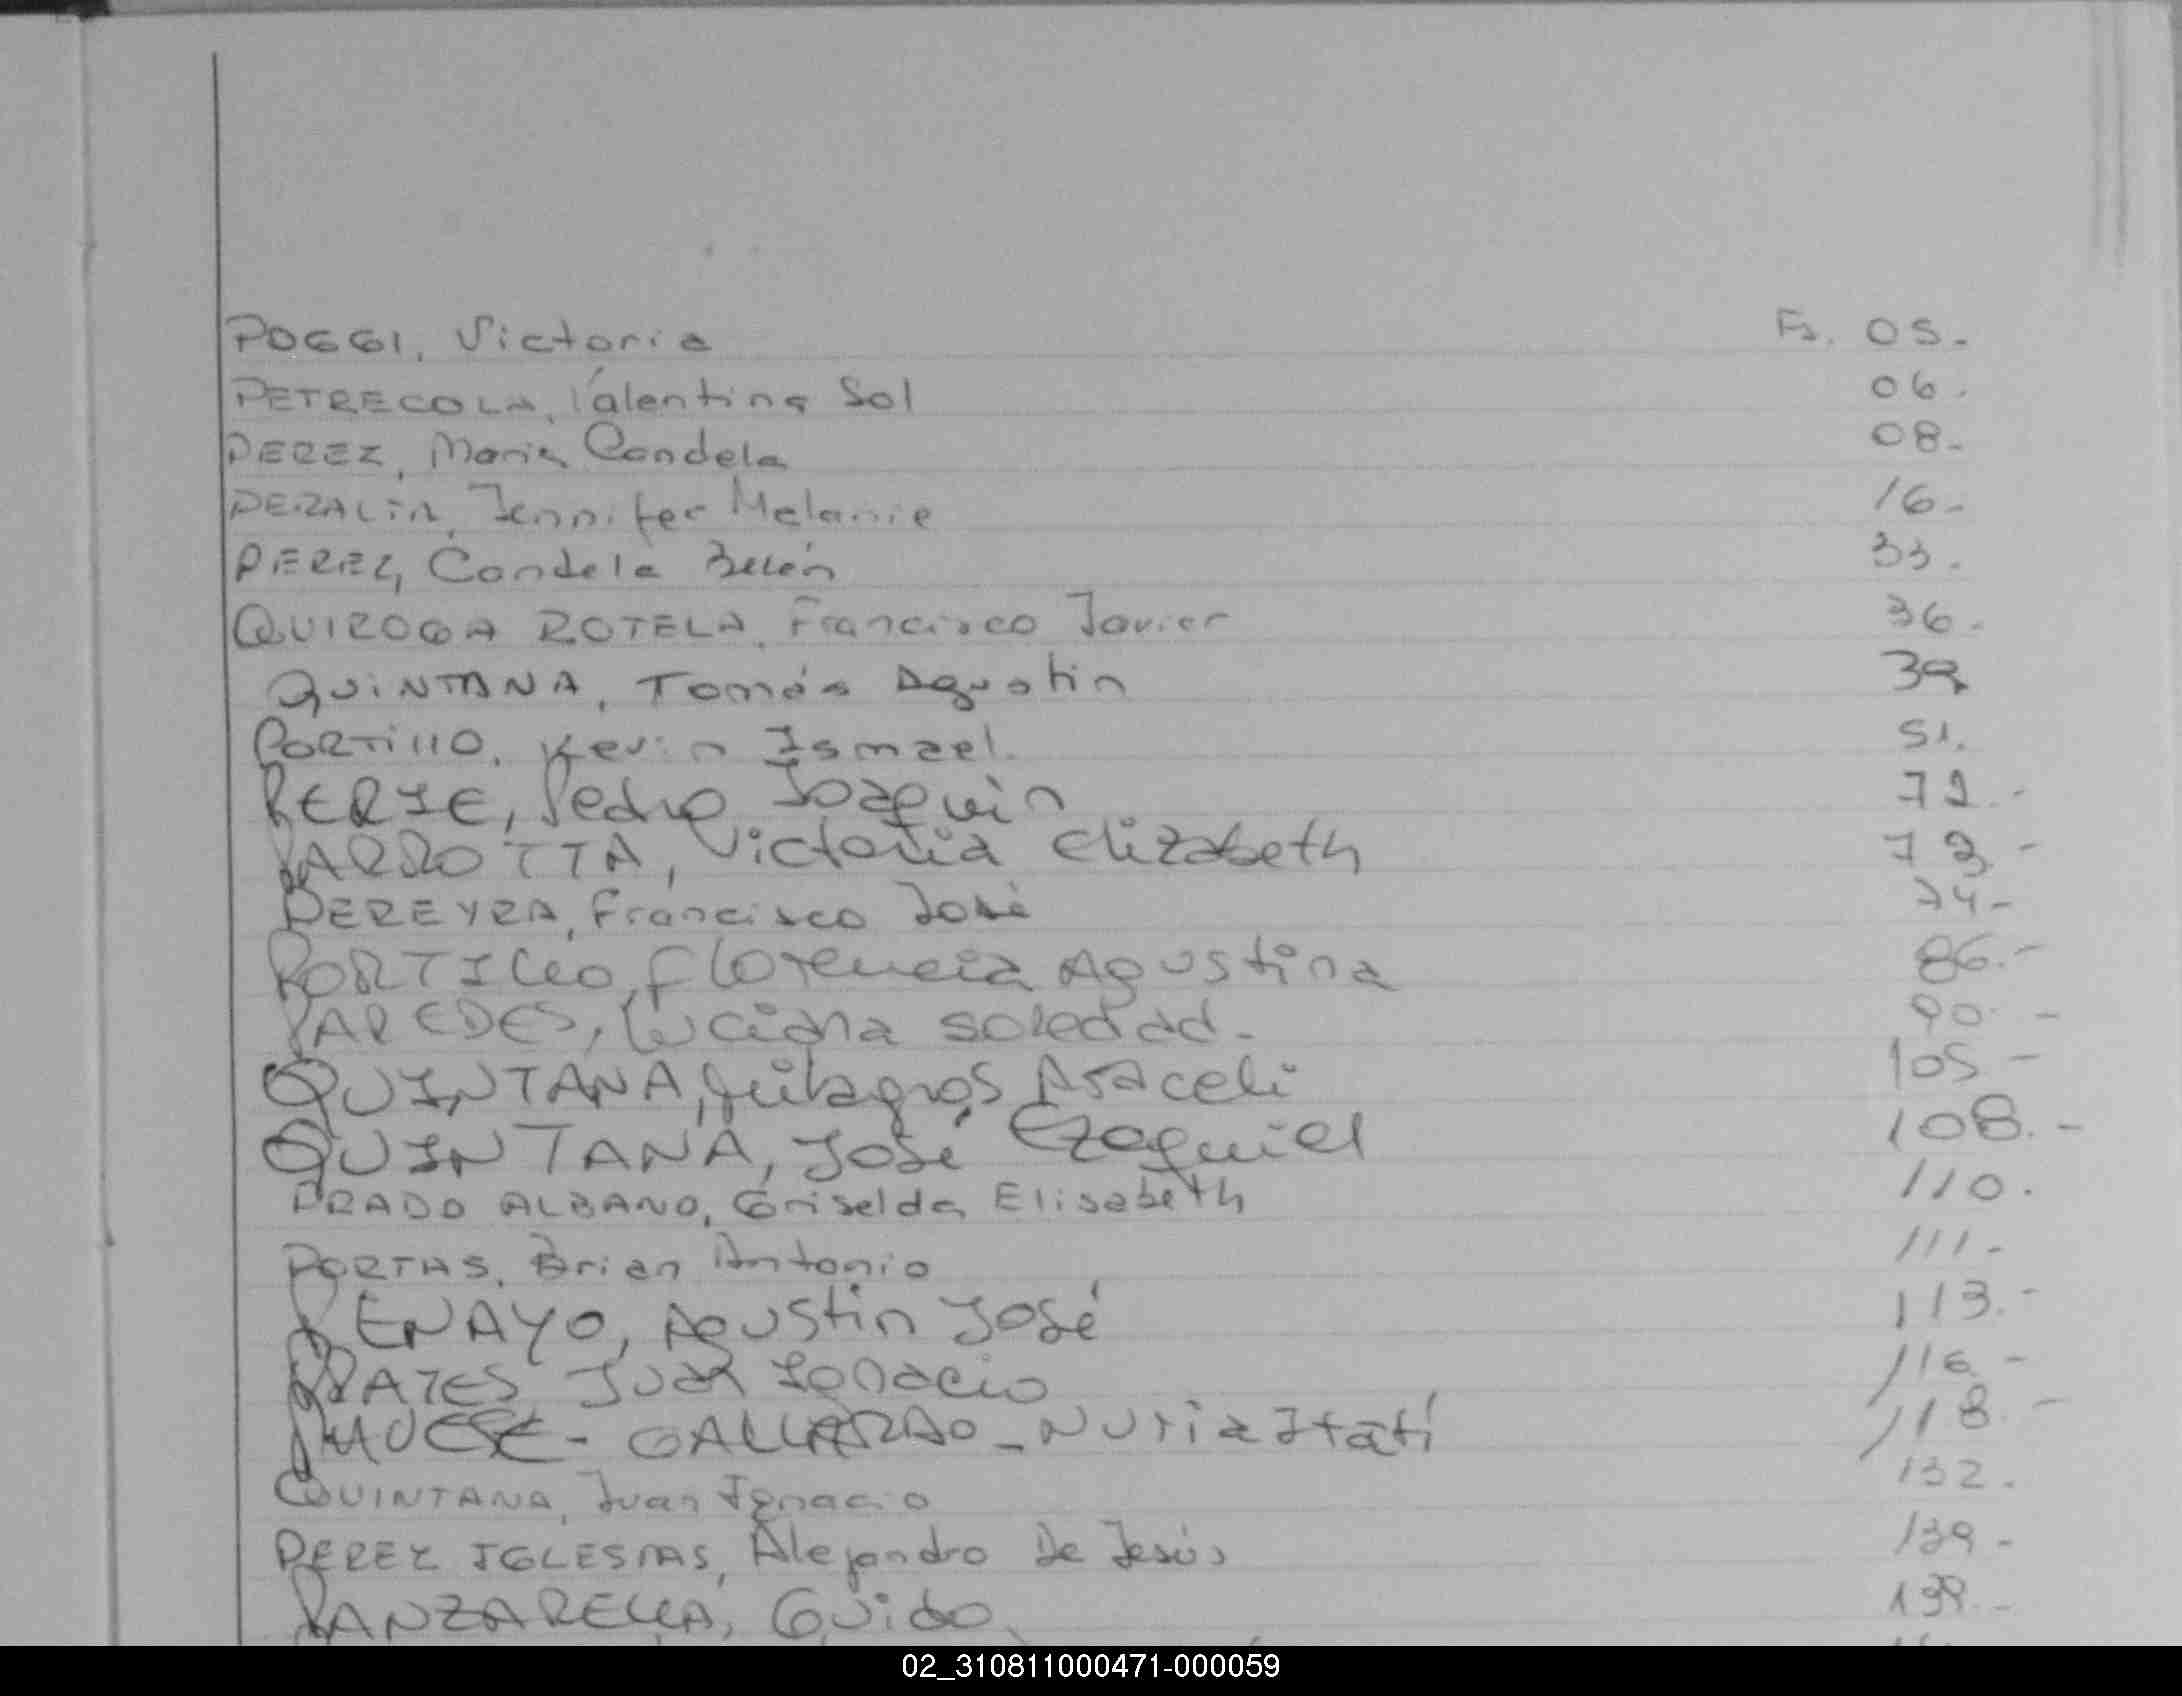 POGGI, Victoria Fs. 05.-
PETRECOLA, Valentina Sol 06.
PEREZ, Maria Candela 08.-
PERALTA, Jennifer Melanie 16.-
PEREZ, Candela Belén 33.
QUIROGA ROTELA, Francisco Javier 36.
QUINTANA, Tomás Agustin 39
PORTIllO, Kevin Ismael. 51.
Pedro Joaquin
PARROTTA, Victoria Elizabeth
PEREYRA, Francisco José 74-
PORTILLO, Florencia Agustina 86.-
PAREDES, Luciana Soledad.- 90.-
QUINTANA, Milagros Araceli 105-
QUINTANA, José Ezequiel 108.-
PRADO ALBANO, Griselda Elisabeth 110.
PORTAS, Brian Antonio 111.-
PENAYO, Agustin José 113.-
PRATES Juan Ignacio 116.-
GALLARDO - Nuria Itatí 118.-
QUINTANA, Juan Ignacio 132.
PEREZ IGLESIAS, Alejandro De Jesús 139-
PANZARELLA, Guido 139.-
02_310811000471-000059